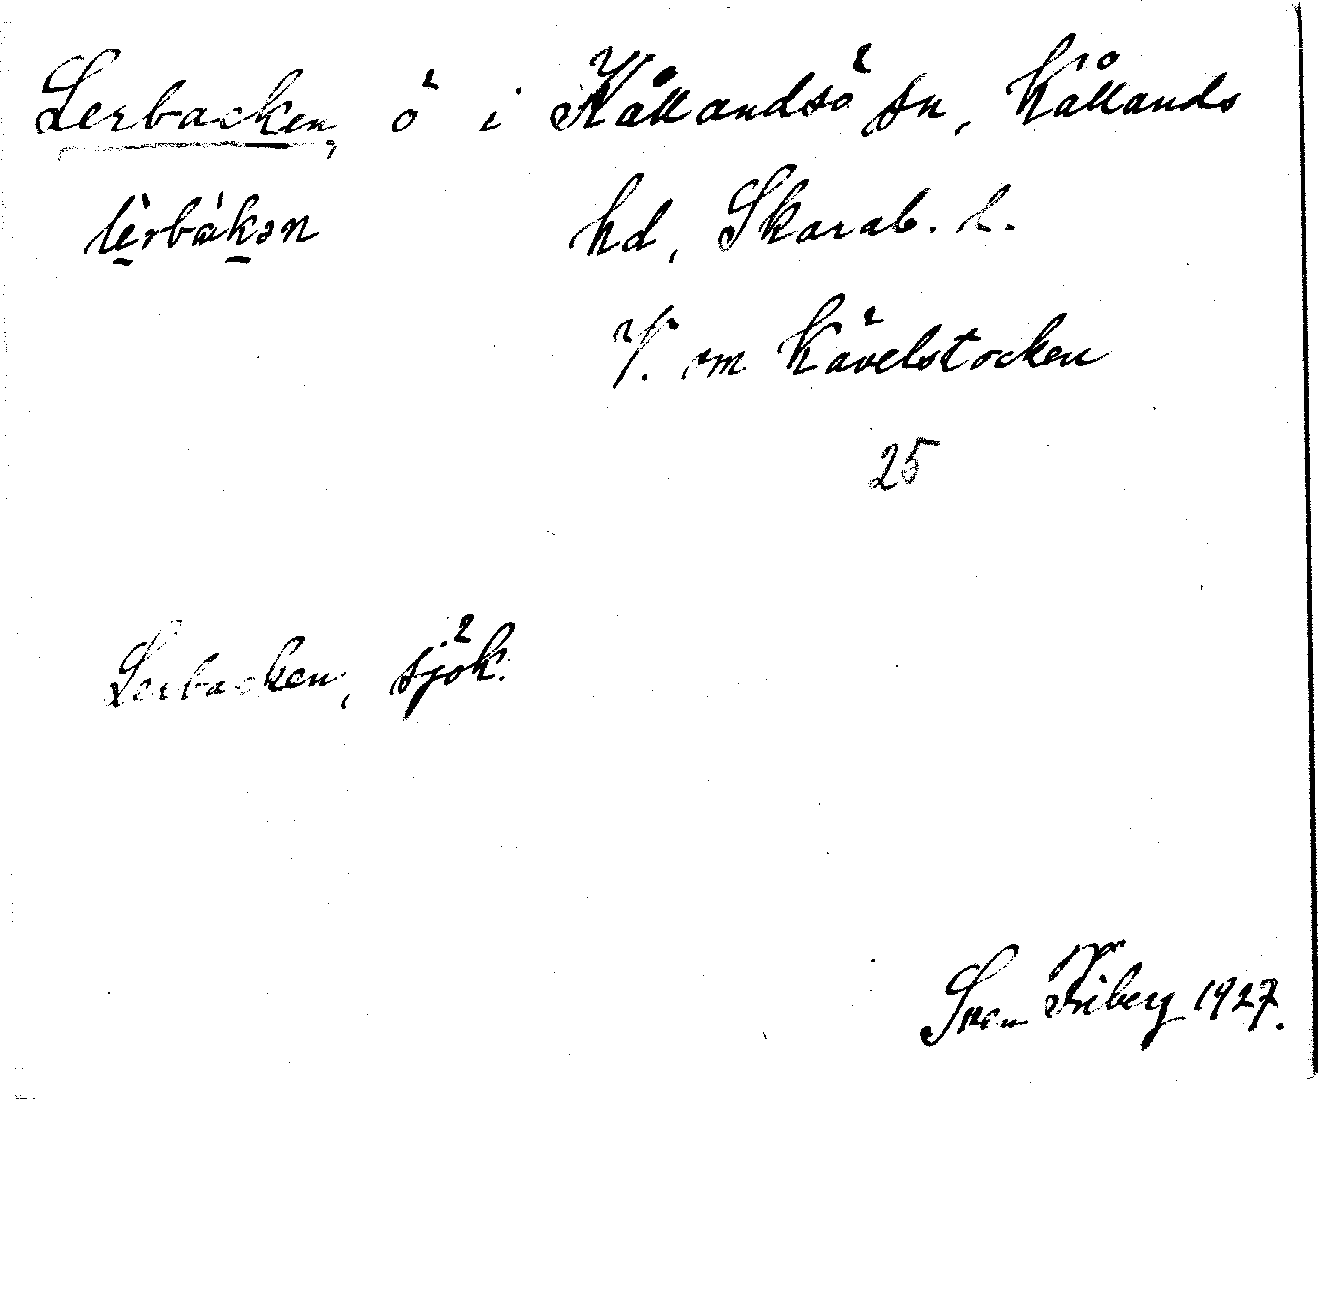 Lerbacken, ö i Kållandsö sn, Kållands
lèrbákən hd, Skarab. l.
V. om Kävelstocken
25
Lerbacken, sjök.
Sven Friberg 1927.